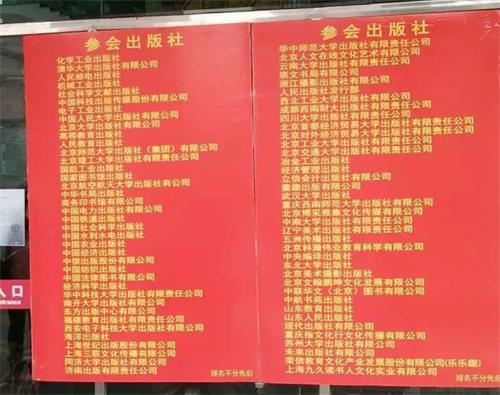 参会出版社
化学工业出版社
清华大学出版社有限公司
人民邮电出版社
机械工业出版社
社会科学文献出版社
中国科技出版传媒股份有限公司
电子工业出版社
中国人民大学出版社有限公司
北京大学出版社有限公司
高等教育出版社
人民教育出版社
北京师范大学出版社（集团）有限公司
北京理工大学出版社有限责任公司
国防工业出版社
国家图书馆出版社
北京航空航天大学出版社有限公司
中华书局出版社
商务印书馆有限公司
中国电力出版社有限公司
中国铁道出版社
中国社会科学出版社
中国水利水电出版社
中国农业出版社
中国经济出版社
中信出版股份有限公司
中国纺织出版社
中国法律图书有限公司
经济科学出版社
华中科技大学出版社有限责任公司
南开大学出版社有限公司
东方出版中心有限公司
福建教育出版社有限责任公司
西安电子科技大学出版社有限公司
海洋出版社
上海世纪出版股份有限公司
上海三联文化传播有限公司
同济大学出版社有限公司
济南出版有限责任公司
排名不分先后
参会出版社
华中师范大学出版社有限责任公司
北京人文在线文化艺术有限公司
云南大学出版社有限责任公司
崇文书局有限公司
浙江摄影出版社有限公司
人民出版社发行部
西北工业大学出版社有限公司
成都西南财大出版社有限责任公司
四川大学出版社有限责任公司
北京首都经济贸易大学出版社有限责任公司
北京对外经济贸易大学出版社有限责任公司
北京工业大学出版社有限责任公司
北京交通大学出版社有限责任公司
冶金工业出版社
经济管理出版社
立信会计出版社有限公司
重庆大学出版社
武汉大学出版社
重庆西南师范大学出版社有限公司
北京博采雅集文化传媒有限公司
中南大学出版社有限责任公司
辽宁美术出版社
五洲传播出版社
北京科瀚伟业教育科学有限公司
中央编译出版社
东北大学出版社
北京美术摄影出版社
北京文翰鹏坤文化发展有限公司
中联华文（北京）图书有限公司
中航书苑出版社
山东教育出版社
山东人民出版社
现代出版社有限公司
重庆扬文化行文化传播有限公司
苏州大学出版社有限公司
未来出版社有限公司
荣信教育文化产业发展股份有限公司(乐乐趣)
上海九久读书人文化实业有限公司
排名不分先后
入口
ntrance